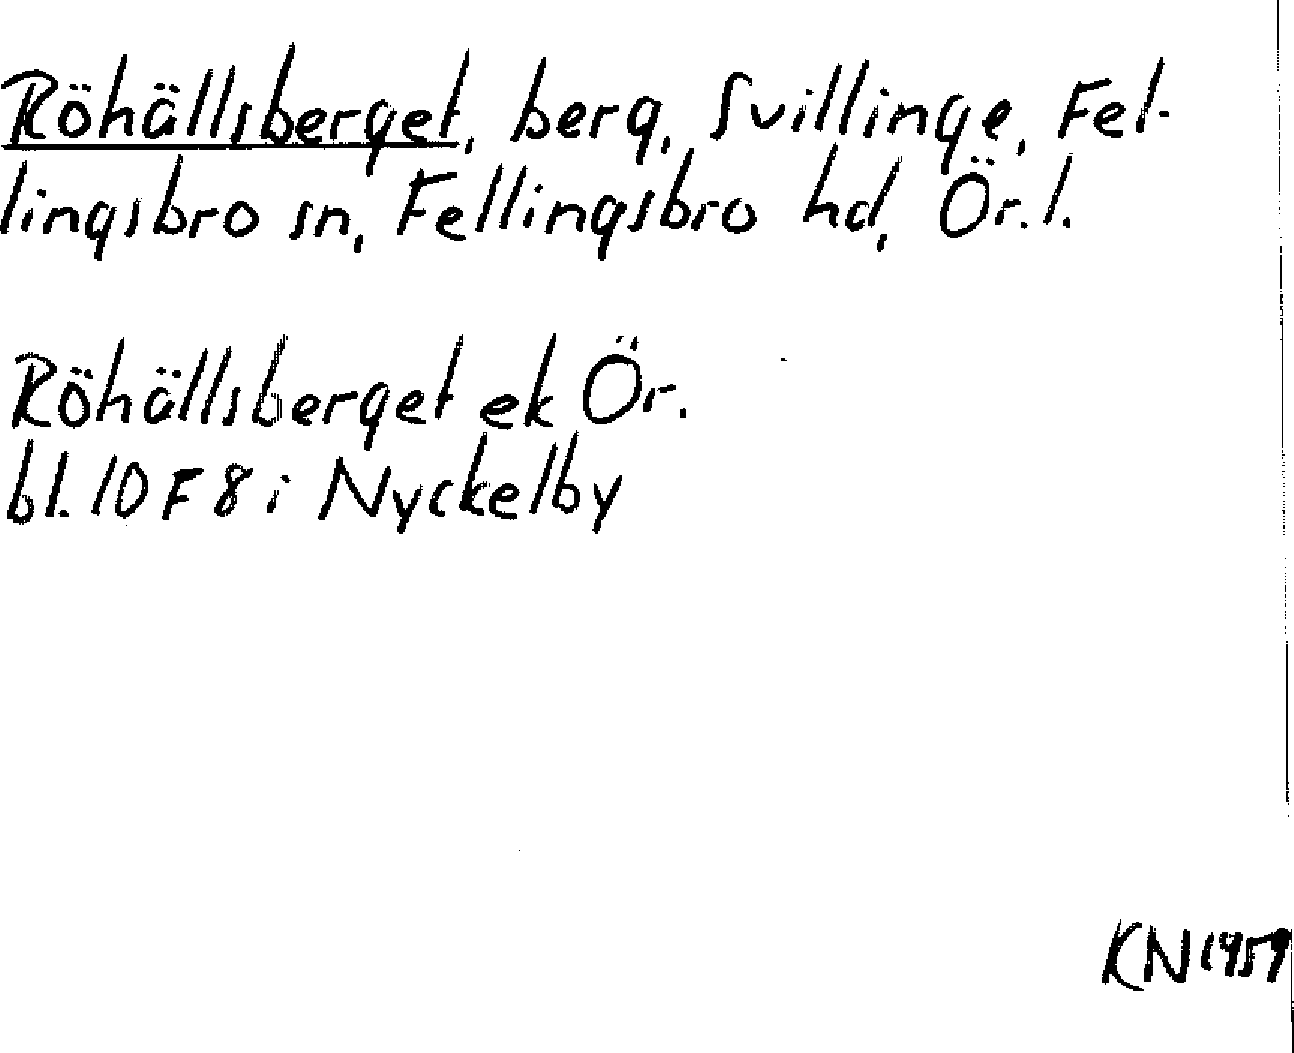 Röhällsberget, berg, Svillinge, Fel-
lingsbro sn, Fellingsbro hd, Ör. l.
Röhällsberget ek Ör.
bl. 10 F 8 i Nyckelby
KN 1959